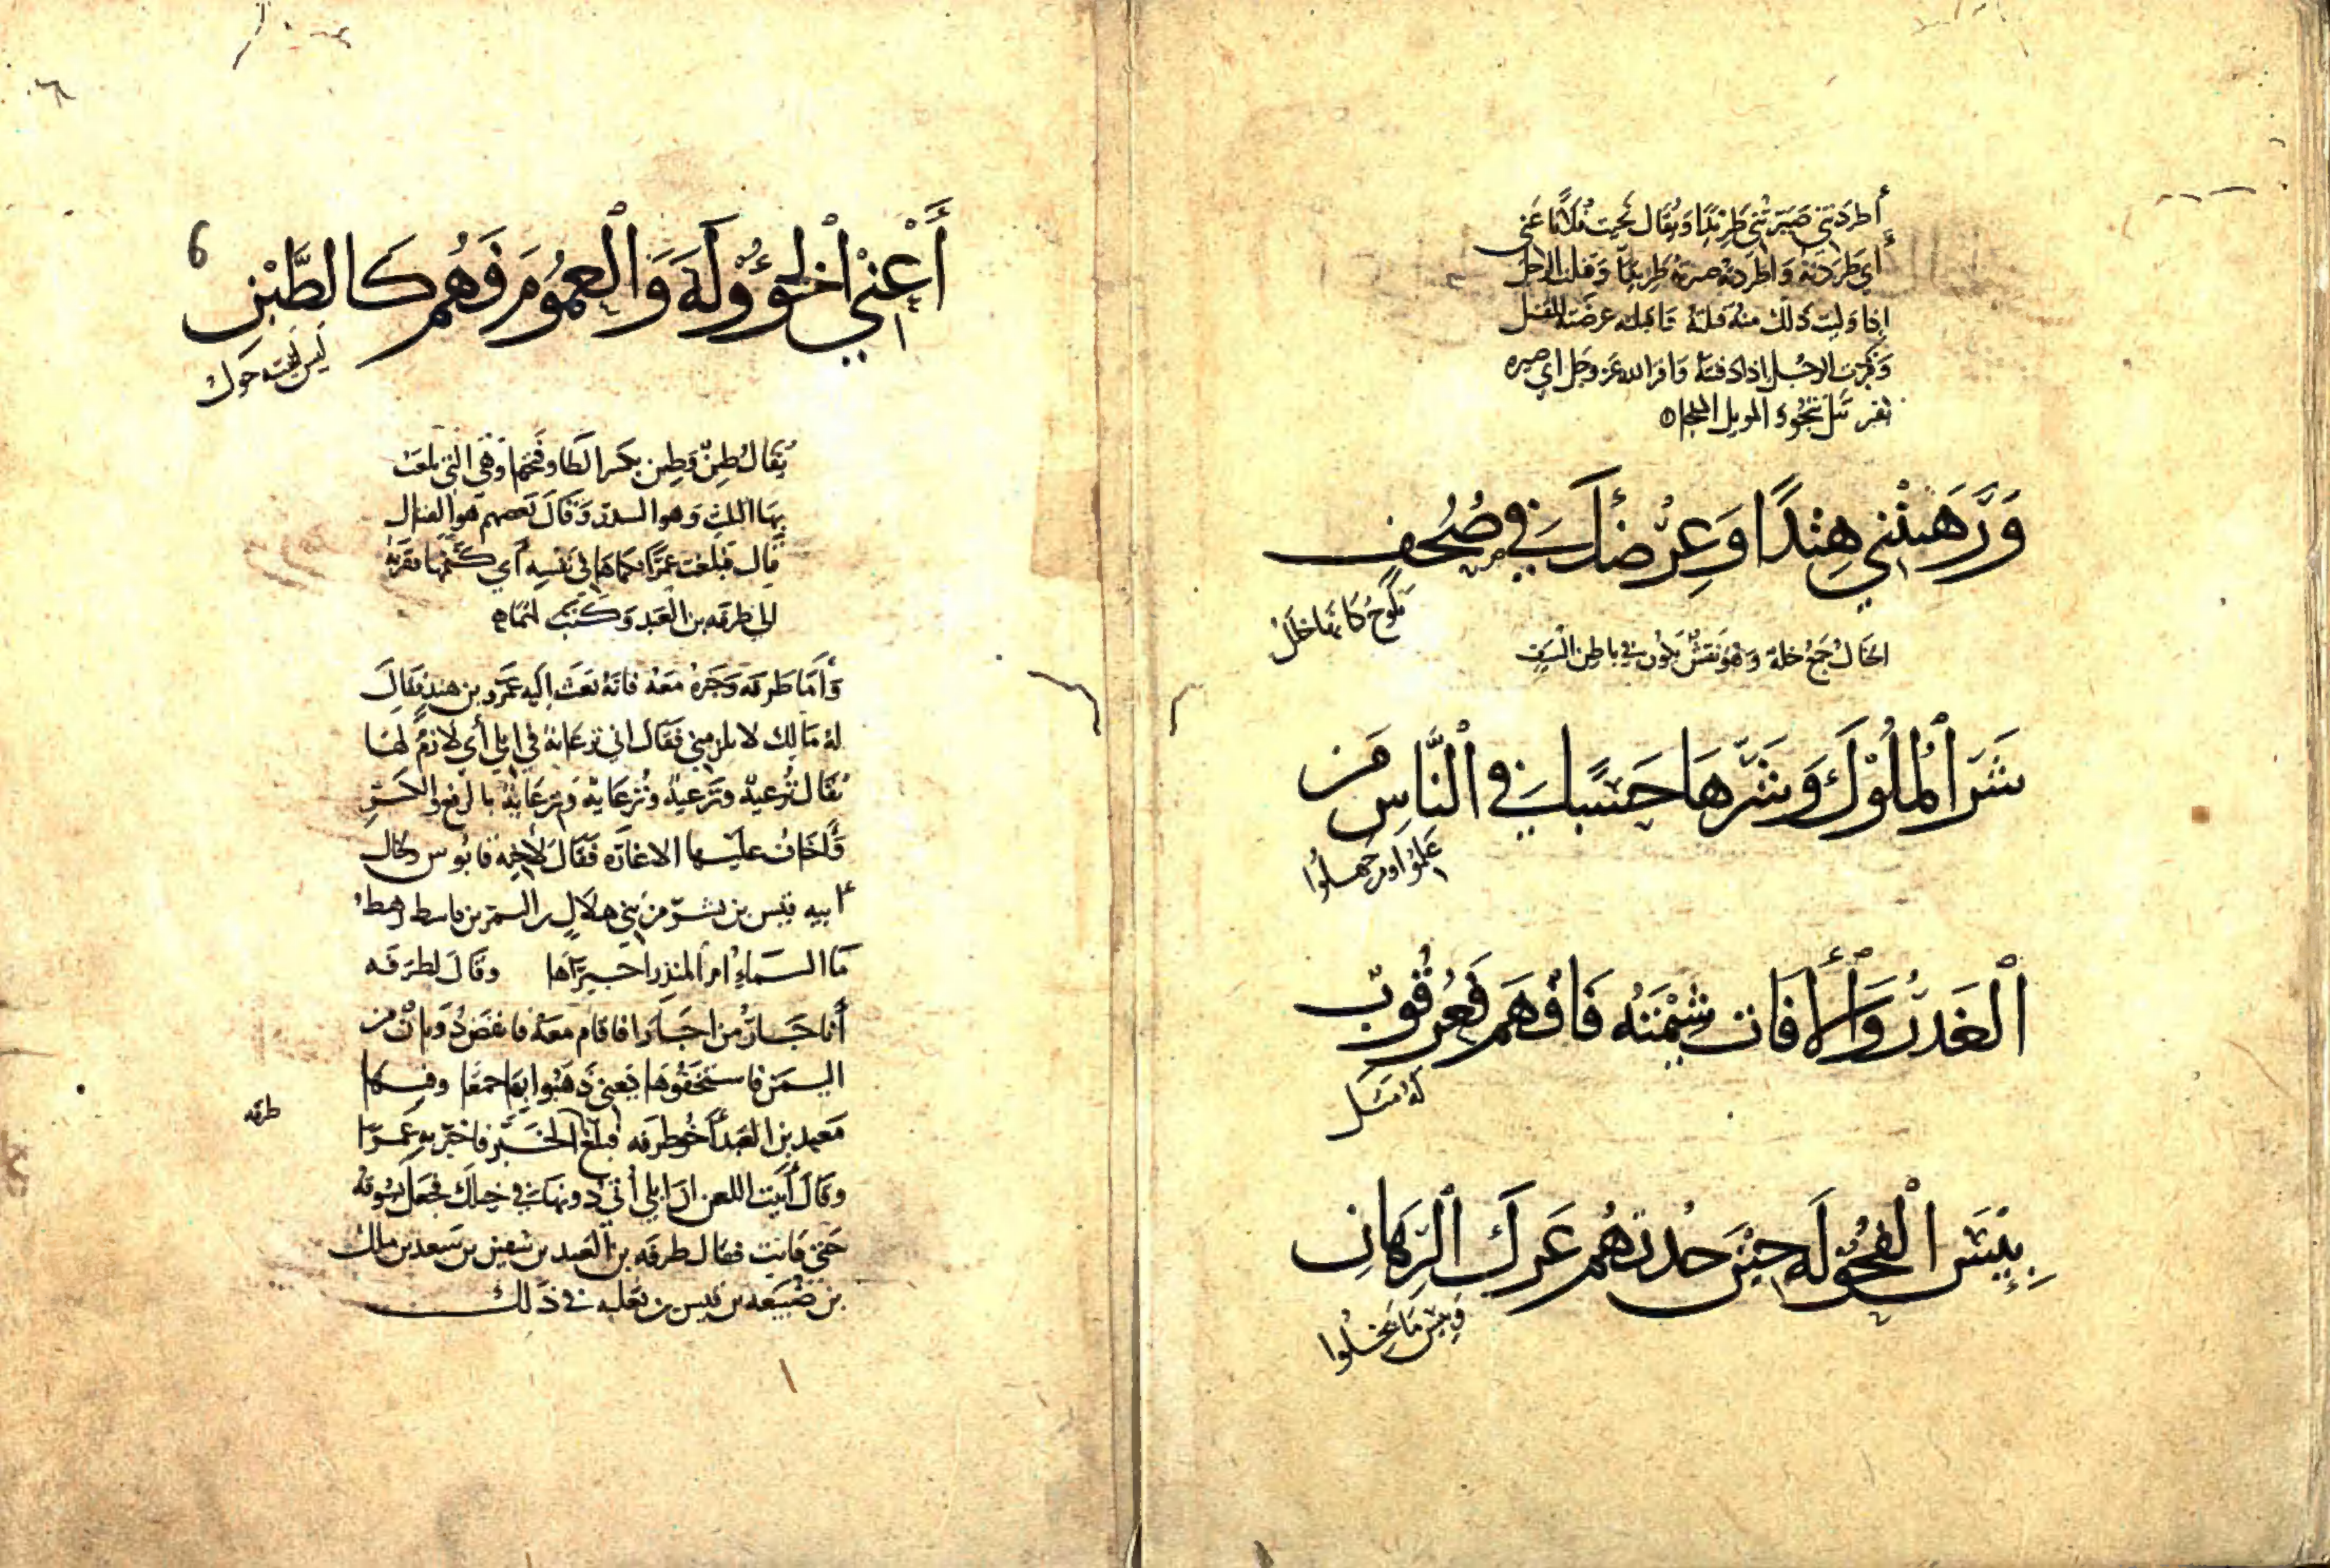 أطردتني صيرتني طريدا ويقال نحيت فلانا عني
أي طردته وأطردته صيرته طريدا وقلت الرجل
إذا وليت ذلك منه قتلته فأقبلته عرضته للقتل
وقبرت الرجل إذا دفنته وأقبره الله عز وجل أي صيره
وَرَهَنْتَنِي هِنْدًا وَعِرْضَكَ فِي صُحُفٍ
تَلُوحُ كَأَنَّهَا خِلَلُ
الخلل جَمع خلة وَهُوَ نَقشٌ يكُون في باطِن السَيف
شَرَّ الْمُلُوكِ وَشَرَّهَا حَسَبًا فِي النَّاسِ مَن
عَلِمُوا ومن جَهِلُوا
الْغَدْرُ وَالْآفَاتُ شِيمَتُهُ فَافْهَم فَعُرْقُوبٌ
لَهُ مَثَلُ
بِئْسَ الْفُحُولَةُ حِينَ جُدْتَهُمُ عَرْكُ الرِّهَانِ
وَبِئْسَ مَا بَخِلُوا
6
أَعْنِي الْخُؤُولَةَ وَالْعُمُومَ فَهُم كَالطَّبْنِ
لَيسَ لبيته حِوَلُ
يُقَال طُبن وَطِبن بكسر الطا وفتحها وهي التي يلعب
بها وهو السدر وَقَالَ بَعضهم هو الفيال
قال فبلغت عمرًا فكماها في نَفسِه أي كتمها
إلى طرفه بن العَبد وَكَتَب لهما
وَأما طَرفه وَغيره مَعه فانه بَعَث إليه عمرو بن هند فقال
له مَالك لا تلزمني فَقَال اني تِرعَايَة في إبلي أي لازم لها
يُقَال تُرعيَة وتِرعية وتُرعَاية وتِرعَاية بالرفع والكسر
وَأخاف عليها الاغارة فقَال لأخيه قابوس ولخال
أبيه قيس بن بشر من بني هلال بن النمر بن قاسط رهط
مَا السماء ام المنذر أجيراها وقَال لطرفه
أنا جَارٌ من أجارا فاقام معه
اليمن فاستخفوها يَعني ذهبوا بها جمعا وفيها
مَعبد بن العَبد أخو طرفه فبلغ الخبر فأخبر به عَمرا
طرفه
وقال أبَيت اللعن ان إبلي أُتي دونها في حبلك فجعل يسوقه
حتى فاتت فقال طرفه بن العبد بن سفين بن سَعد بن مالك
بن ضُبيعه بن قيس بن ثعلبه في ذلك